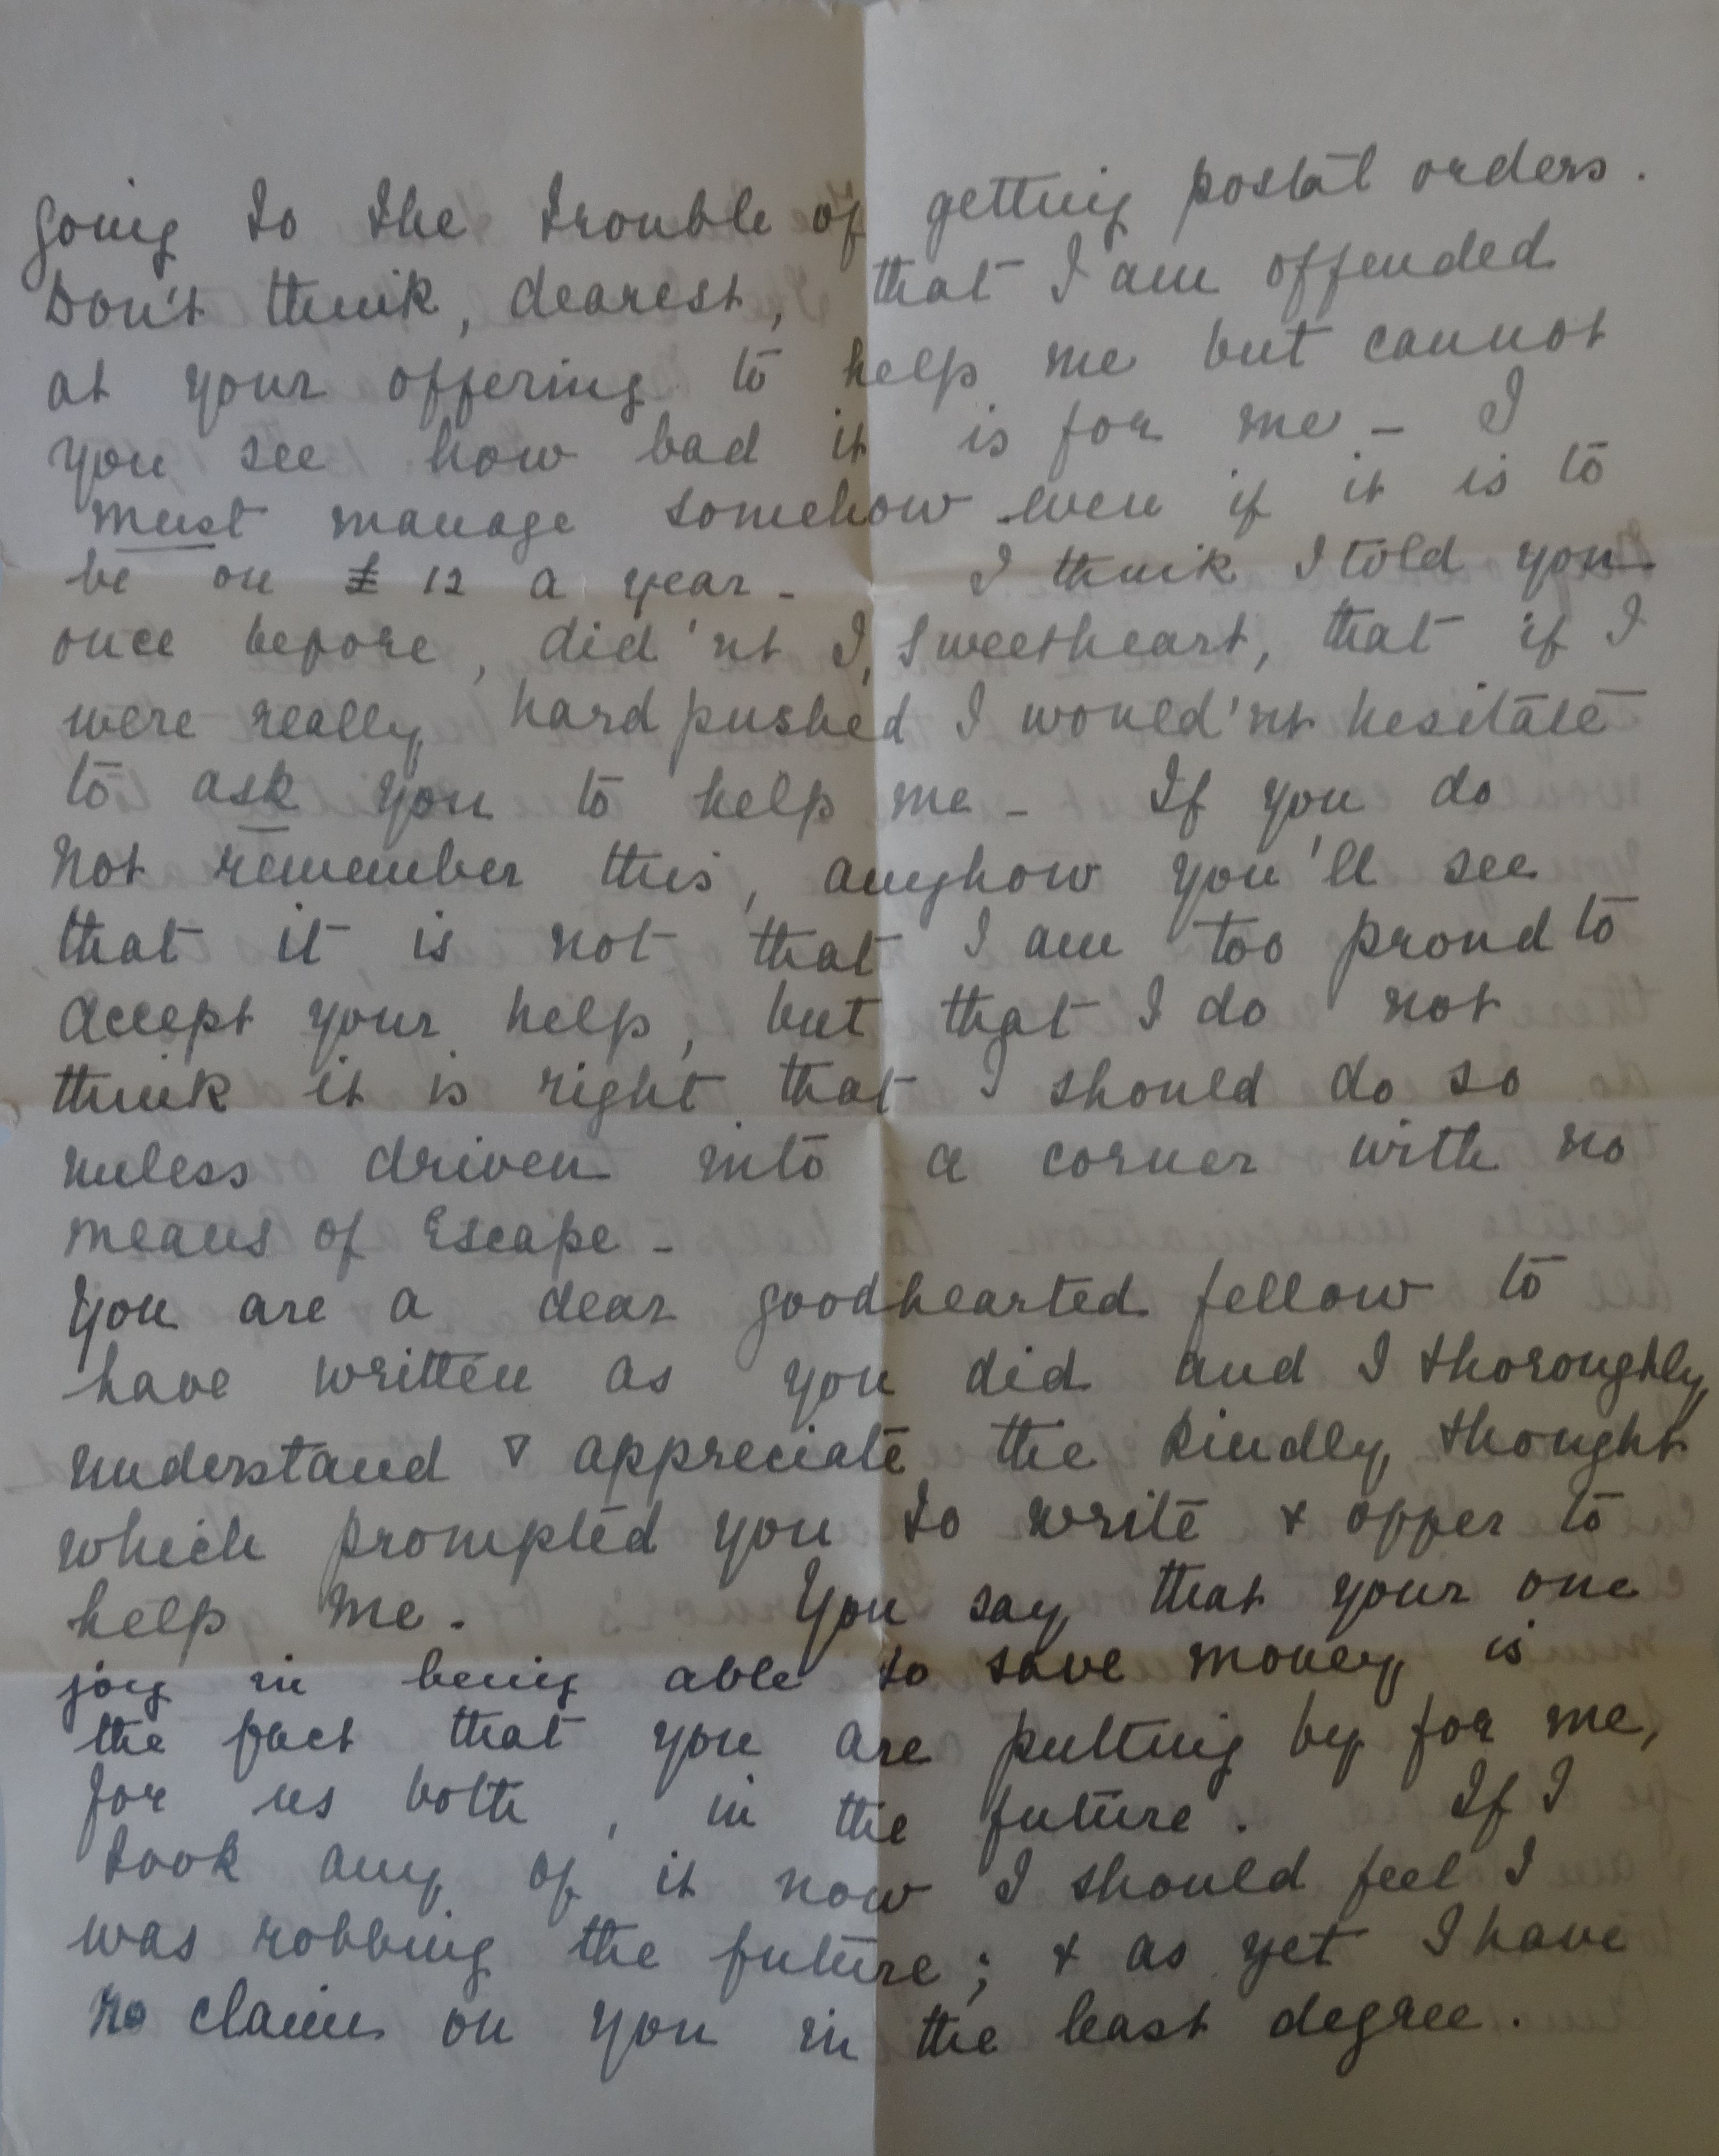 going to the trouble of getting postal orders.
Don't think, dearest, that I am offended
at your offering to help me but cannot
you see how bad it is for me - I
must manage somehow even if it is to
be on £12 a year - I think I told you
once before, did'nt I, sweetheart, that if I
were really hard pushed I would'nt hesitate
to ask you to help me - If you do
not remember this, anyhow you'll see
that it is not that I am too proud to
accept your help, but that I do not
think it is right that I should do so
unless driven into a corner with no
means of escape -
You are a dear goodhearted fellow to
have written as you did and I thoroughly
understand & appreciate the kindly thought
which prompted you to write & offer to
help me. You say that your one
joy in being able to save money is
the fact that you are putting by for me,
for us both, in the future. If I
took any of it now I should feel I
was robbing the future; & as yet I have
no claim on you in the least degree.